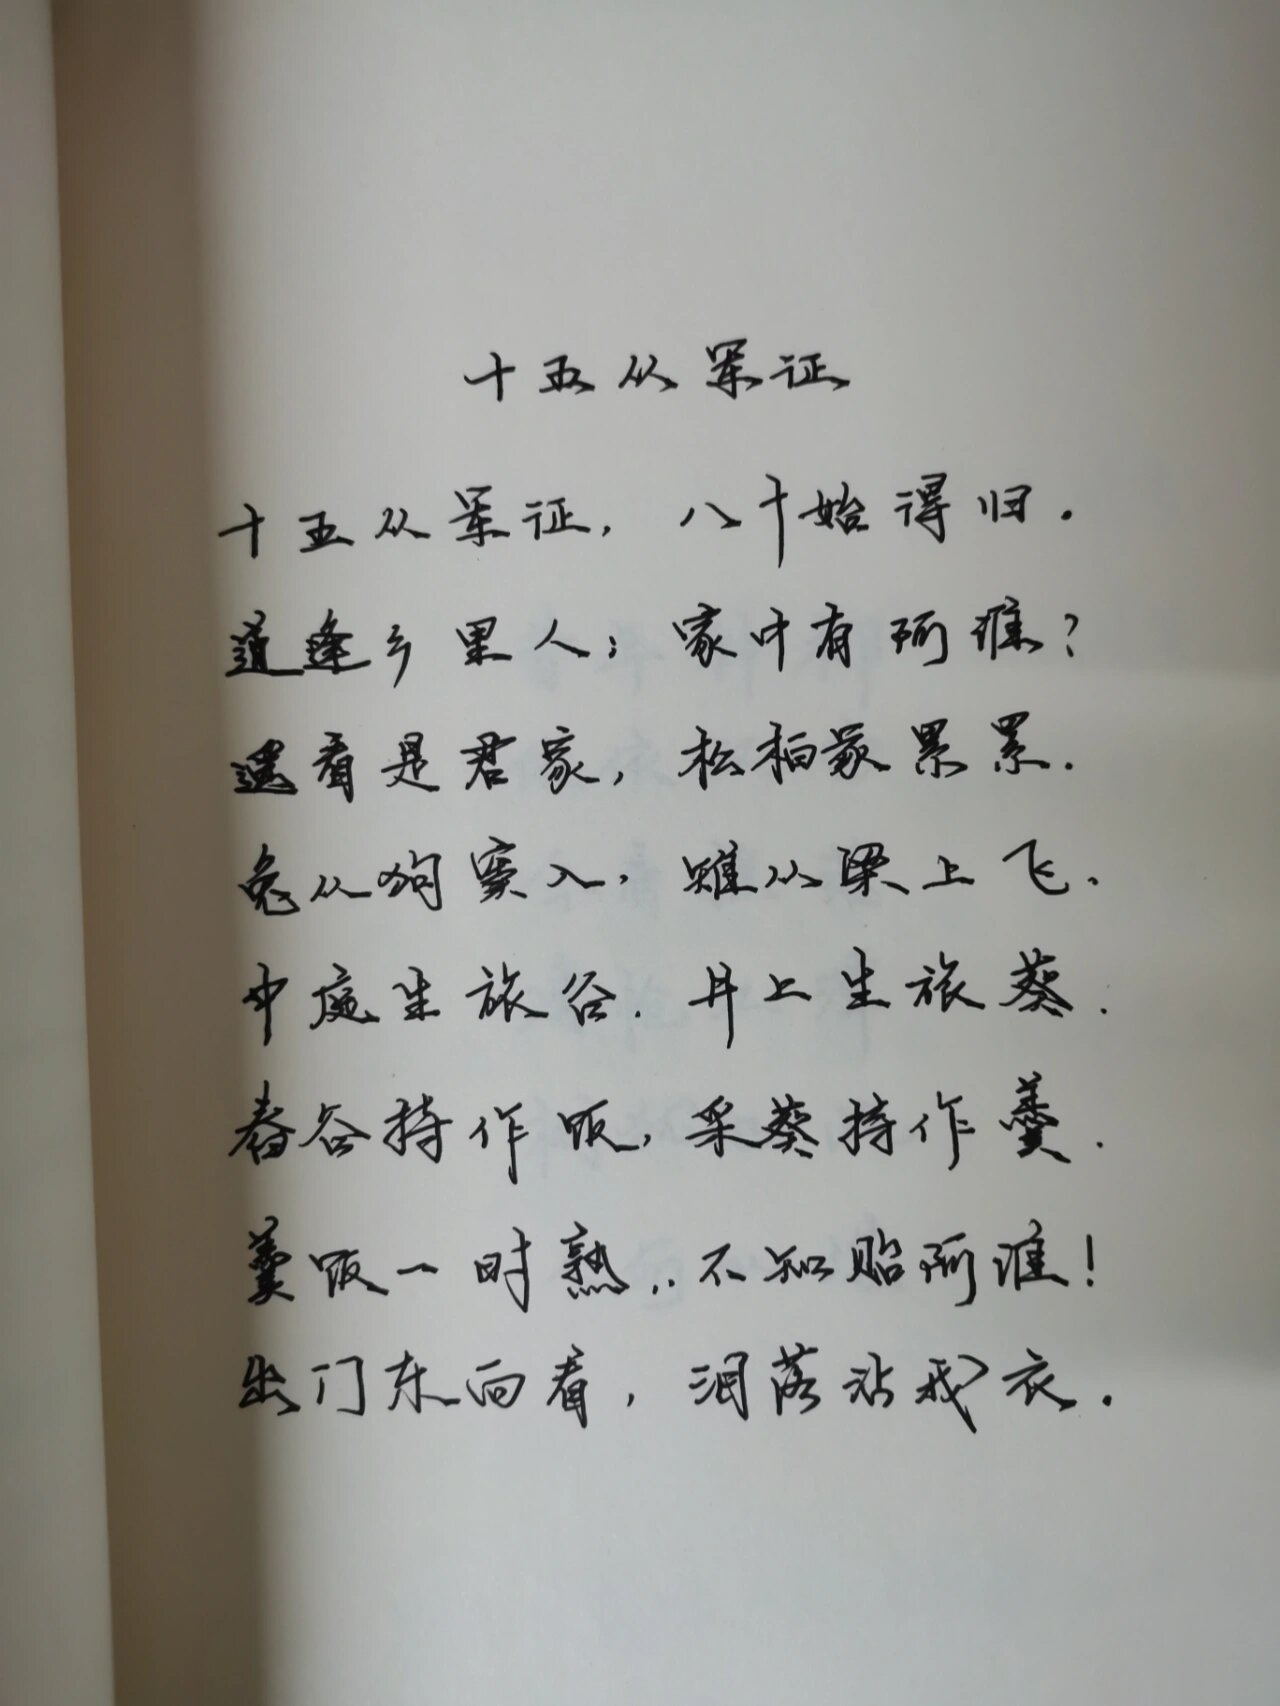 十五从军征
十五从军征，八十始得归.
道逢乡里人；家中有阿谁？
遥看是君家，松柏冢累累.
兔从狗窦入，雉从梁上飞.
中庭生旅谷.井上生旅葵.
舂谷持作饭，采葵持作羹.
羹饭一时熟..不知贻阿谁！
出门东向看，泪落沾我衣.